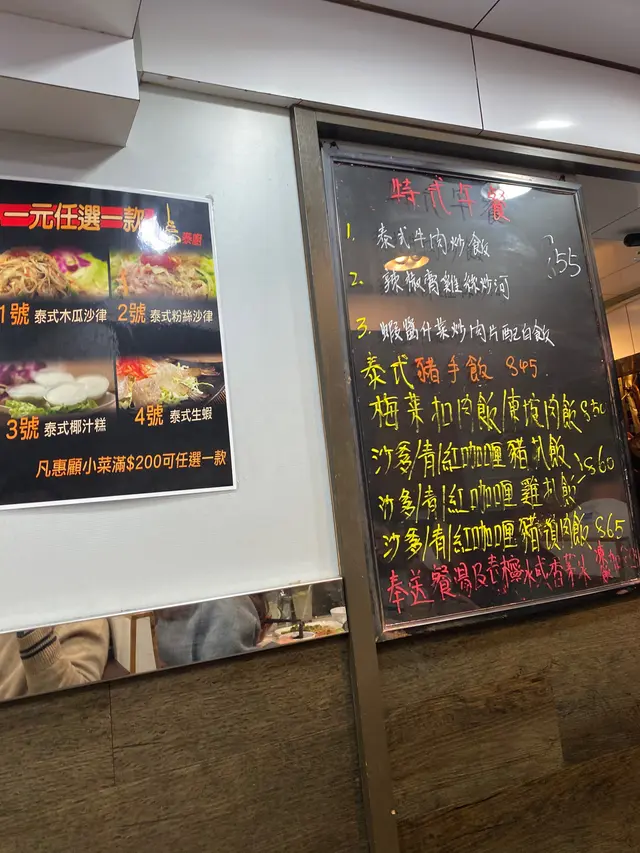 一元任選一款
泰廚
1號 泰式木瓜沙律
2號 泰式粉絲沙律
3號 泰式椰汁糕
4號 泰式生蝦
凡惠顧小菜滿$200可任選一款
特式午餐
1. 泰式牛肉炒飯
2. 辣椒膏雞絲炒河
}55
3. 蝦醬什菜炒肉片配白飯
泰式豬手飯 $45
梅菜扣肉飯/東坡肉飯$50
沙爹/青/紅咖喱豬扒飯
沙爹/青/紅咖喱雞扒飯
}$60
沙爹/青/紅咖喱豬頸肉飯$65
奉送餐湯及壳檸水或香茅水